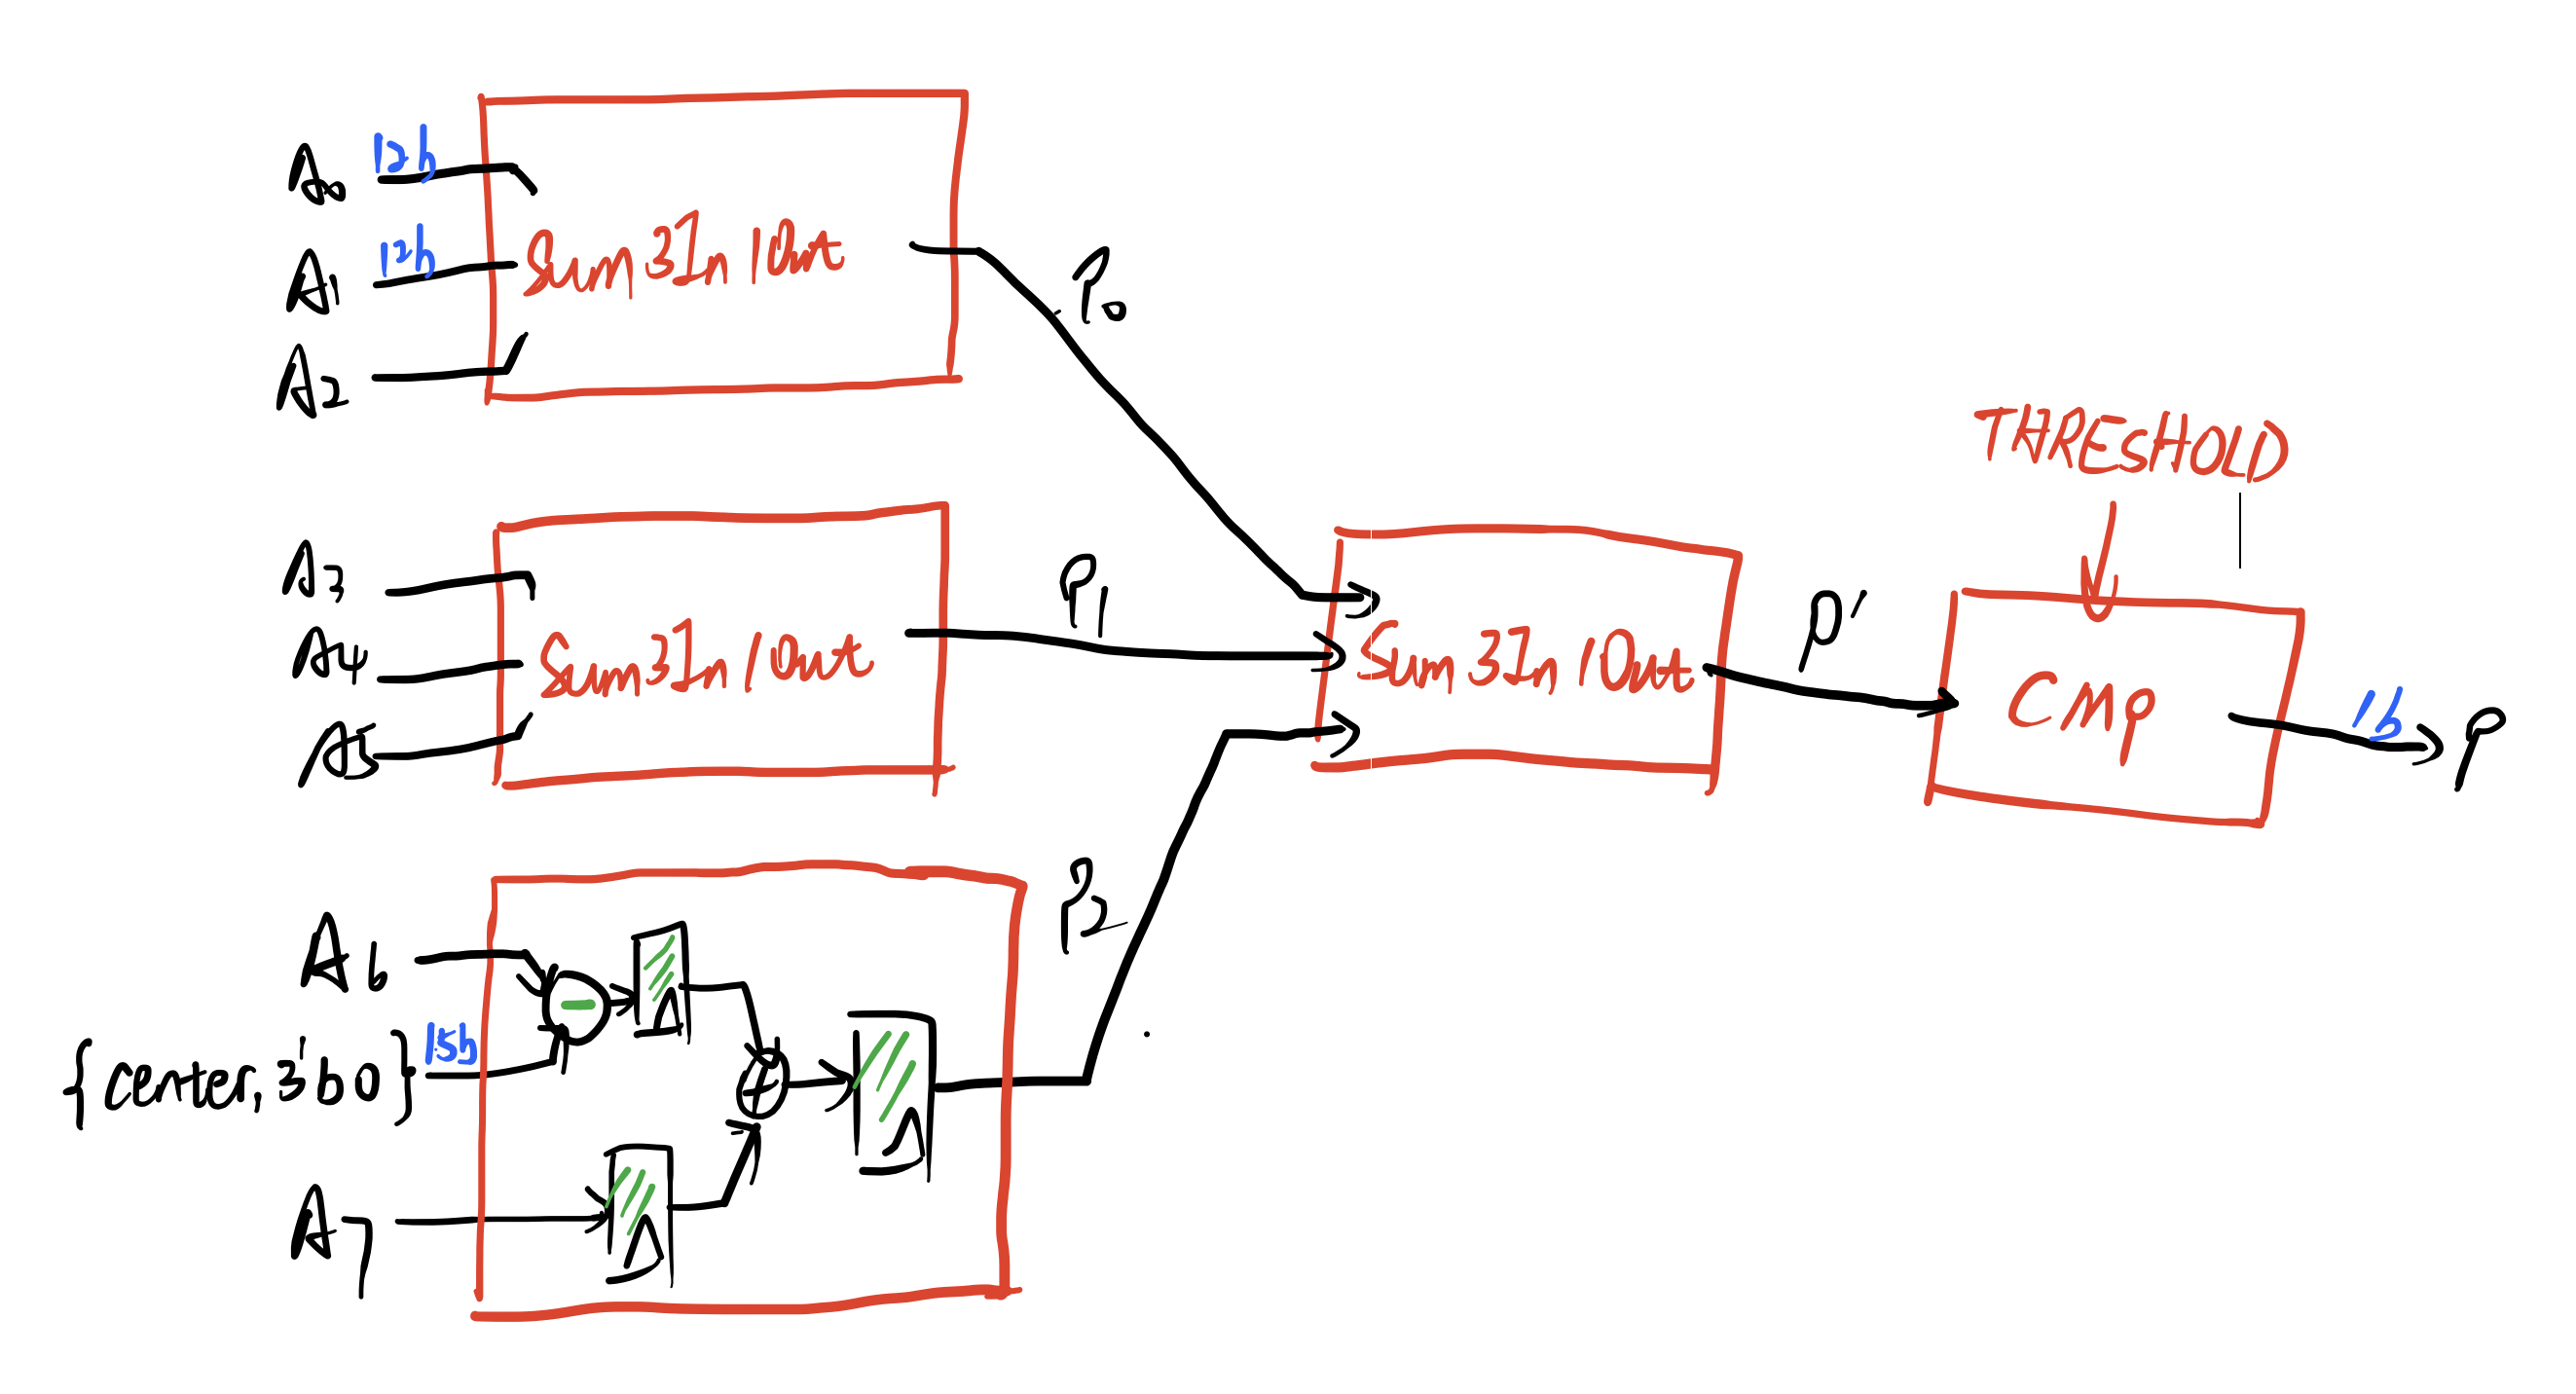 A0 12b
A1 12b
A2
Sum3In1Out
P0
A3
A4
A5
Sum3In1Out
P1
A6
{center, 3'b0} 15b
A7
-
+
P2
Sum3In1Out
P'
THRESHOLD
CMP
1b
P